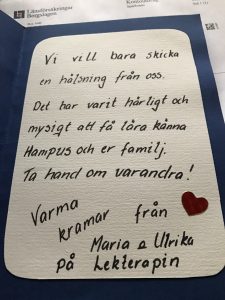 Länsförsäkringar
Bergslagen
Vi vill bara skicka
en hälsning från oss.
Det har varit härligt och
mysigt att få lära känna
Hampus och er familj.
Ta hand om varandra!
Varma
kramar från
Maria & Ulrika
på Lekterapin